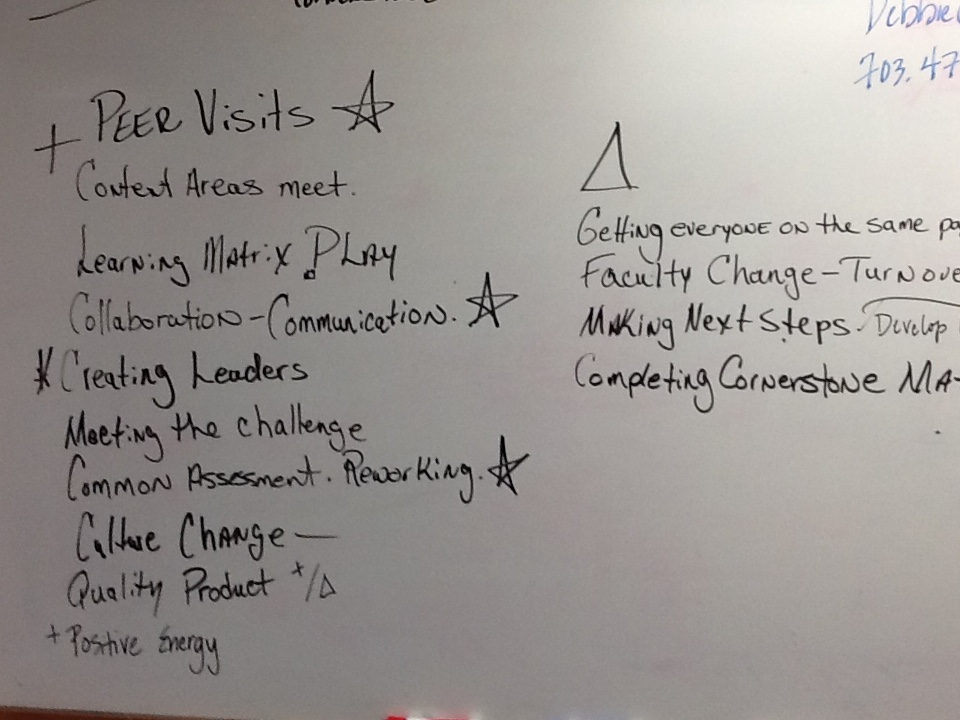 Debbie
703.47
+ PEER Visits ☆
Content Areas meet.
Learning Matrix PLAY
Collaboration - Communication. ☆
* Creating Leaders
Meeting the challenge
Common Assessment. Reworking. ☆
Culture Change —
Quality Product +/Δ
+ Positive Energy
Δ
Getting everyone on the same pa
Faculty Change - Turnove
Making Next Steps. Develop
Completing Cornerstone MA